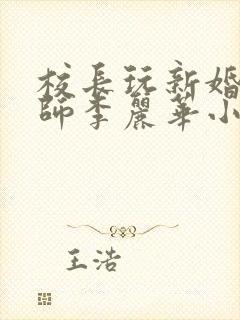 校長玩新婚
師李麗華小
王浩